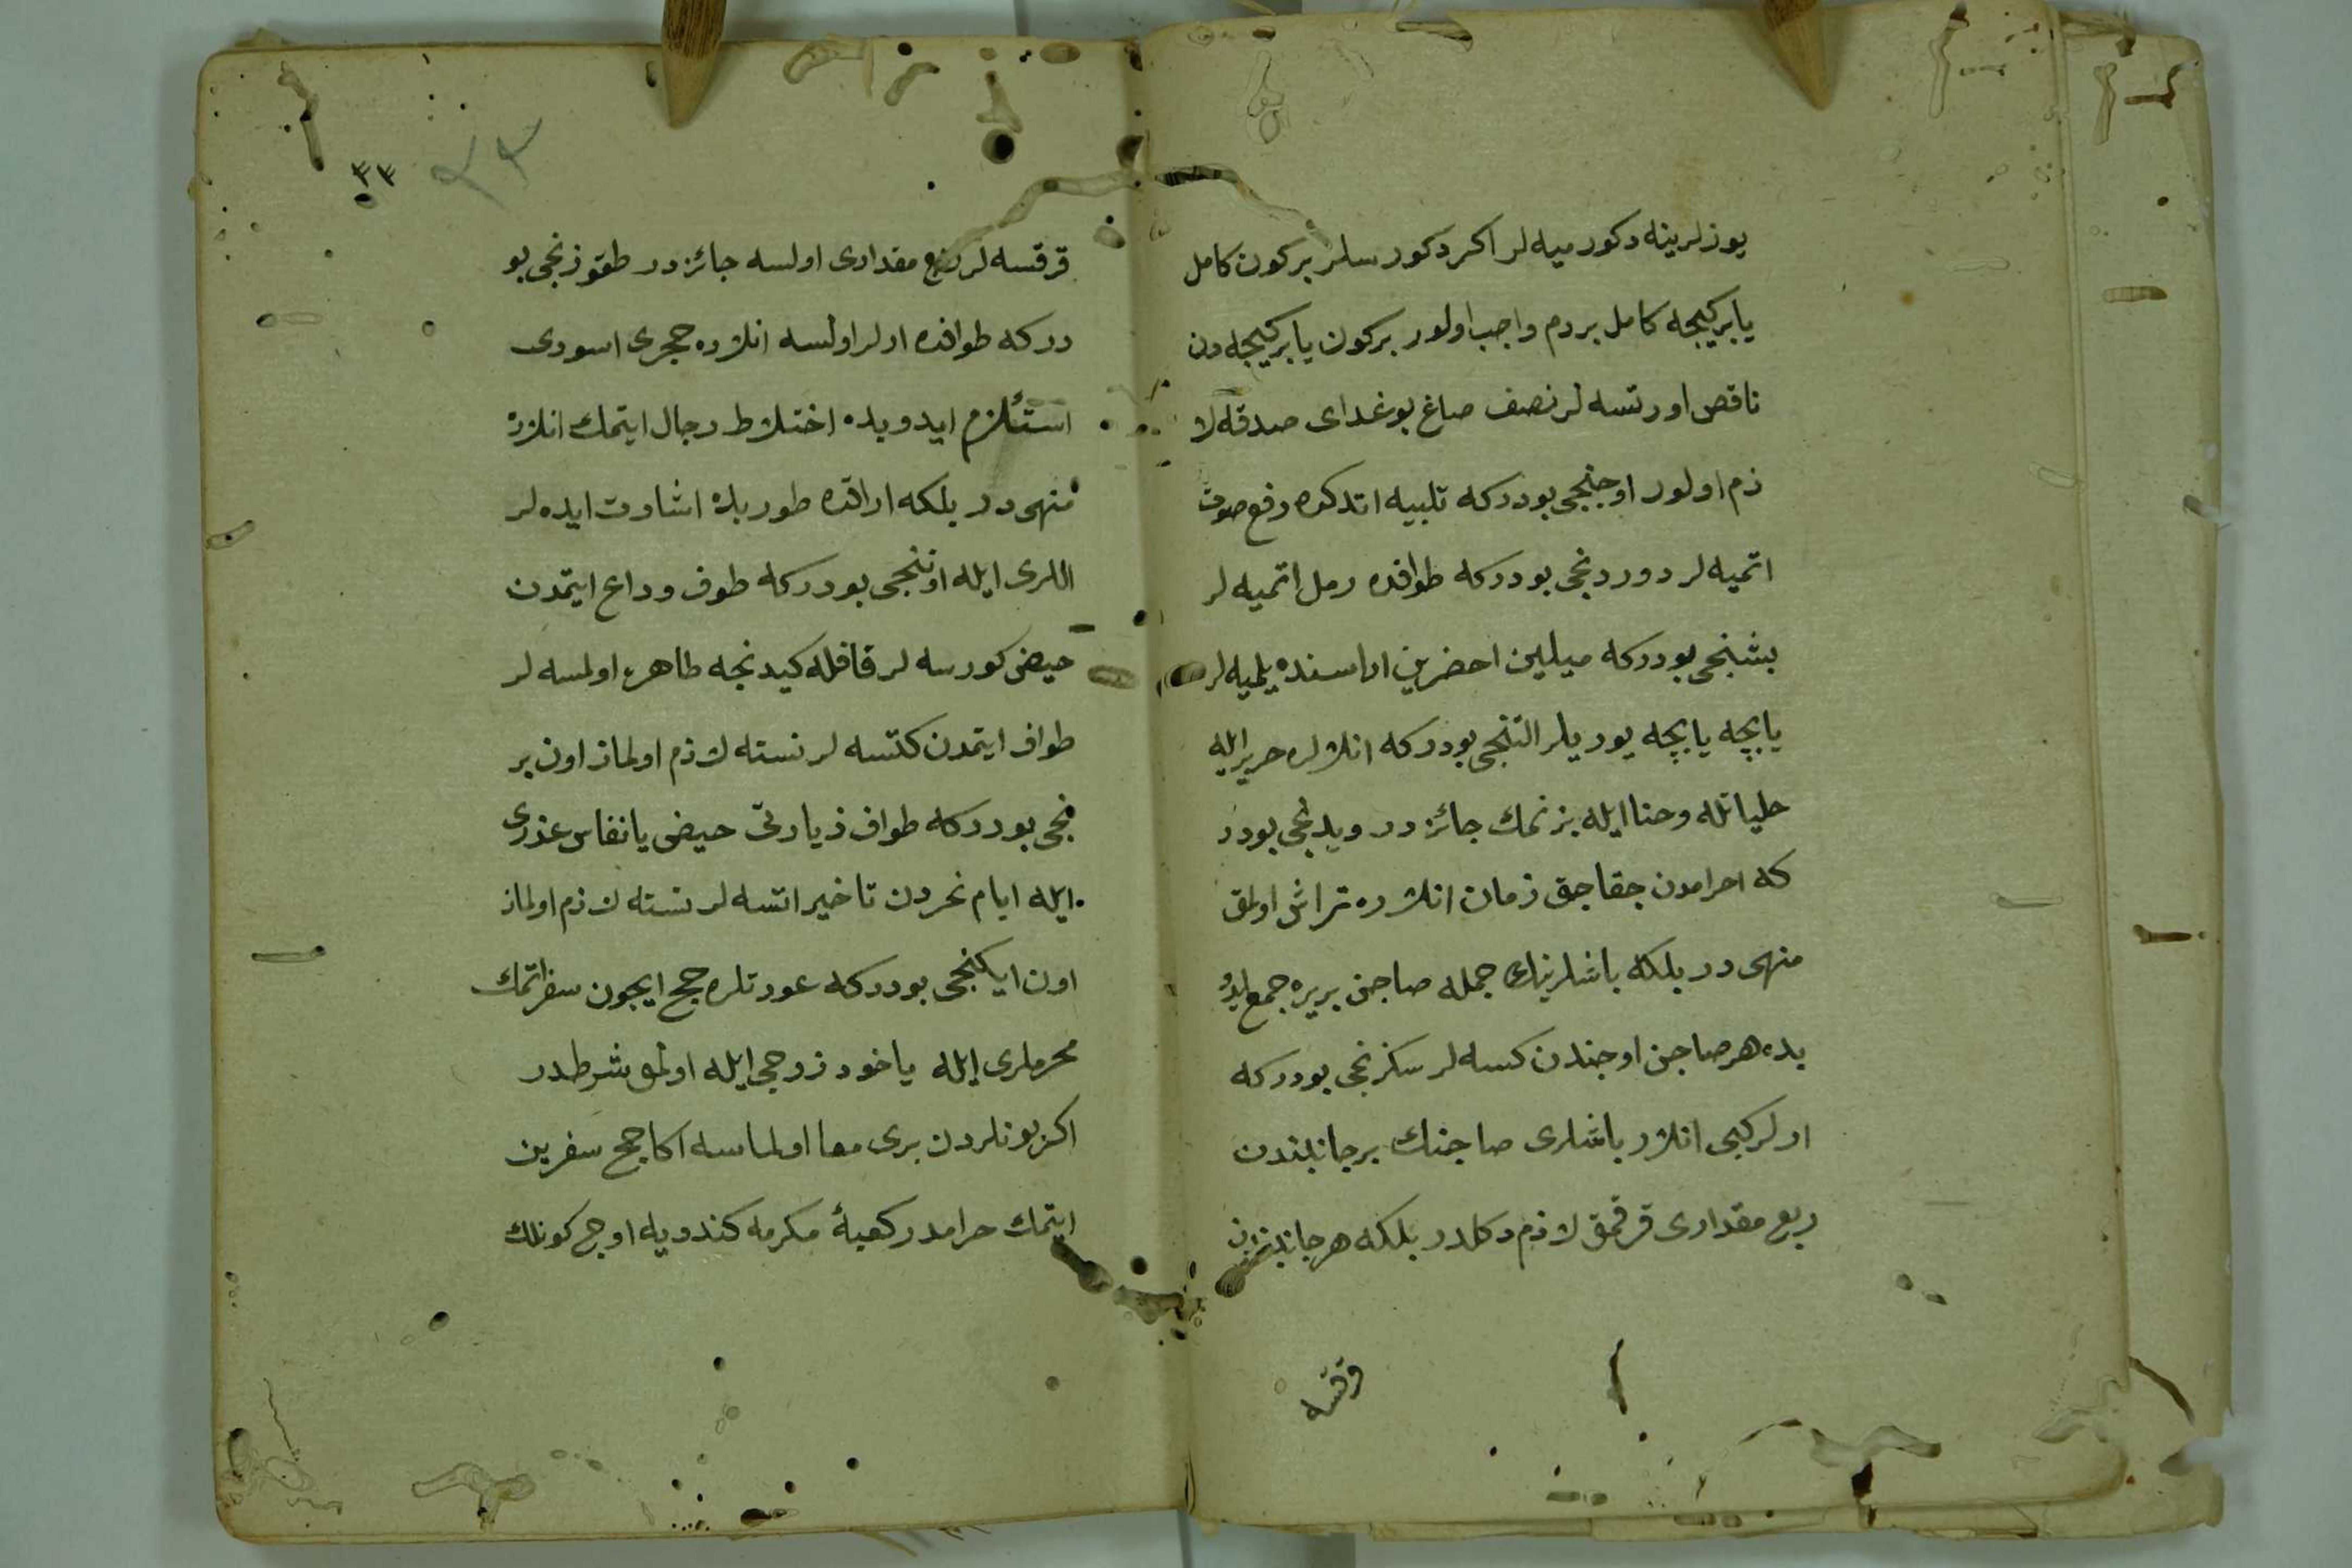 يوزلرينه دكورميه لر اكر دكورسلر بركون كامل
يا بركيجه كامل بر دم واجب اولور بركون يا بركيجه دن
ناقص اورتسه لر نصف صاغ بوغداى صدقه لا
زم اولور اوچنجى بودركه تلبيه اتدكده رفع صوت
اتميه لر دوردنجى بودركه طوافده رمل اتميه لر
بشنجى بودركه ميلين احضرين اراسنده يلميه لر
يابچه يابچه يوريلر التنجى بودركه انلرلره حرير ايله
حلياتله وحنا ايله بزنمك جائزدر ويدنجى بودر
كه احرامدن چقاجق زمان انلرده تراش اولمق
منهى در بلكه باشلرينك جمله صاچن بريره جمع ايدو
بده هر صاچن اوجندن كسه لر سكزنجى بودركه
ارلركبى انلار باشلرى صاچنك برجانبندن
ربع مقدارى قرقمق لازم دكلدر بلكه هر جانبدن
قرقسه
٣٣
٣٣
قرقسه لر ربع مقدارى اولسه جائزدر طقوزنجى بو
دركه طوافده ارلر اولسه انلرده حجرى اسودى
استلزم ايدوبده اختلاط رجال ايتمك انلاره
منهى در بلكه اراقده طوربده اشارت ايده لر
اللرى ايله اوننجى بودركه طوف وداع ايتمدن
حيض كورسه لر قافله كيدنجه طاهره اولمسه لر
طواف ايتمدن كتسه لر نسنه لازم اولماز اون بر
نجى بودركه طواف زيارتى حيض يا نفاس عذرى
ايله ايام نحردن تاخير اتسه لر نسنه لازم اولماز
اون ايكنجى بودركه عورتلره حج ايچون سفر اتمك
محرملرى ايله ياخود زوجى ايله اولمق شرطدر
اكر بونلردن برى معا اولماسه اكا حج سفرين
ايتمك حرامدر كعبۀ مكرمه كندويه اوچ كونلك